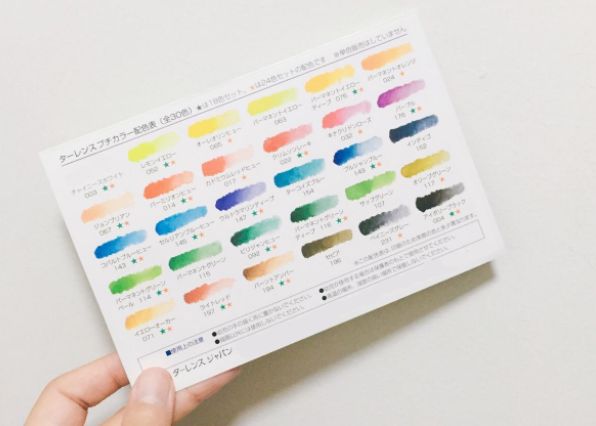 ターレンス プチカラー配色表(全30色) ★は18色セット、★は24色セットの配色です ※単色販売はしていません
チャイニーズホワイト
003 ★★
レモンイエロー
052 ★★
オーレオリンヒュー
065 ★
パーマネントイエロー
063
パーマネントイエロー
ディープ 076 ★★
パーマネントオレンジ
024 ★
ジョンブリアン
067 ★★
バーミリオンヒュー
014 ★★
カドミウムレッドヒュー
017 ★
クリムソンレーキ
022 ★★
キナクリドンローズ
035 ★
パープル
176 ★★
コバルトブルーヒュー
143 ★★
セルリアンブルーヒュー
145 ★★
ウルトラマリンディープ
147 ★★
ターコイズブルー
154
プルシャンブルー
149 ★★
インディゴ
152
パーマネントグリーン
ペール 114 ★★
パーマネントグリーン
115
ビリジャンヒュー
092 ★★
パーマネントグリーン
ディープ 116 ★★
サップグリーン
107
オリーブグリーン
117 ★
イエローオーカー
071 ★★
ライトレッド
197 ★★
バーントアンバー
194 ★★
セピア
196
ペイニーズグレー
231 ★
アイボリーブラック
004 ★★
■使用上の注意
ターレンス ジャパン